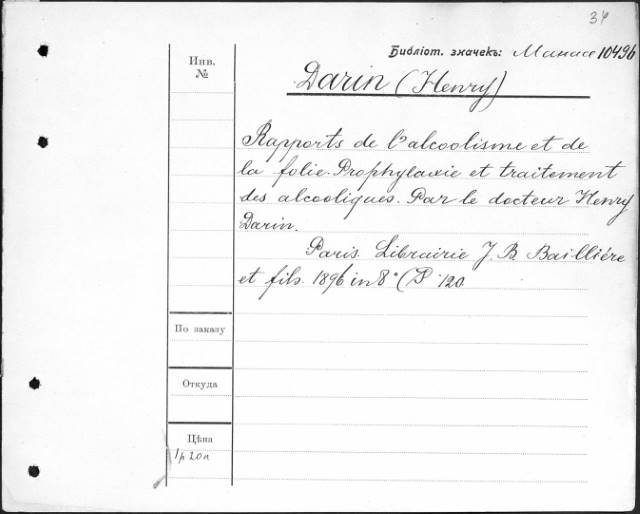 34
Библіот. значекъ: Манасе 10496
Инв.
№
Darin (Henry)
Rapports de l'alcoolisme et de
la folie. Prophylaxie et traitement
des alcooliques. Par le docteur Henry
Darin.
Paris. Librairie J. B. Bailliére
et fils. 1896 in 8° (P 120.
По заказу
Откуда
Цѣна
1р 20к